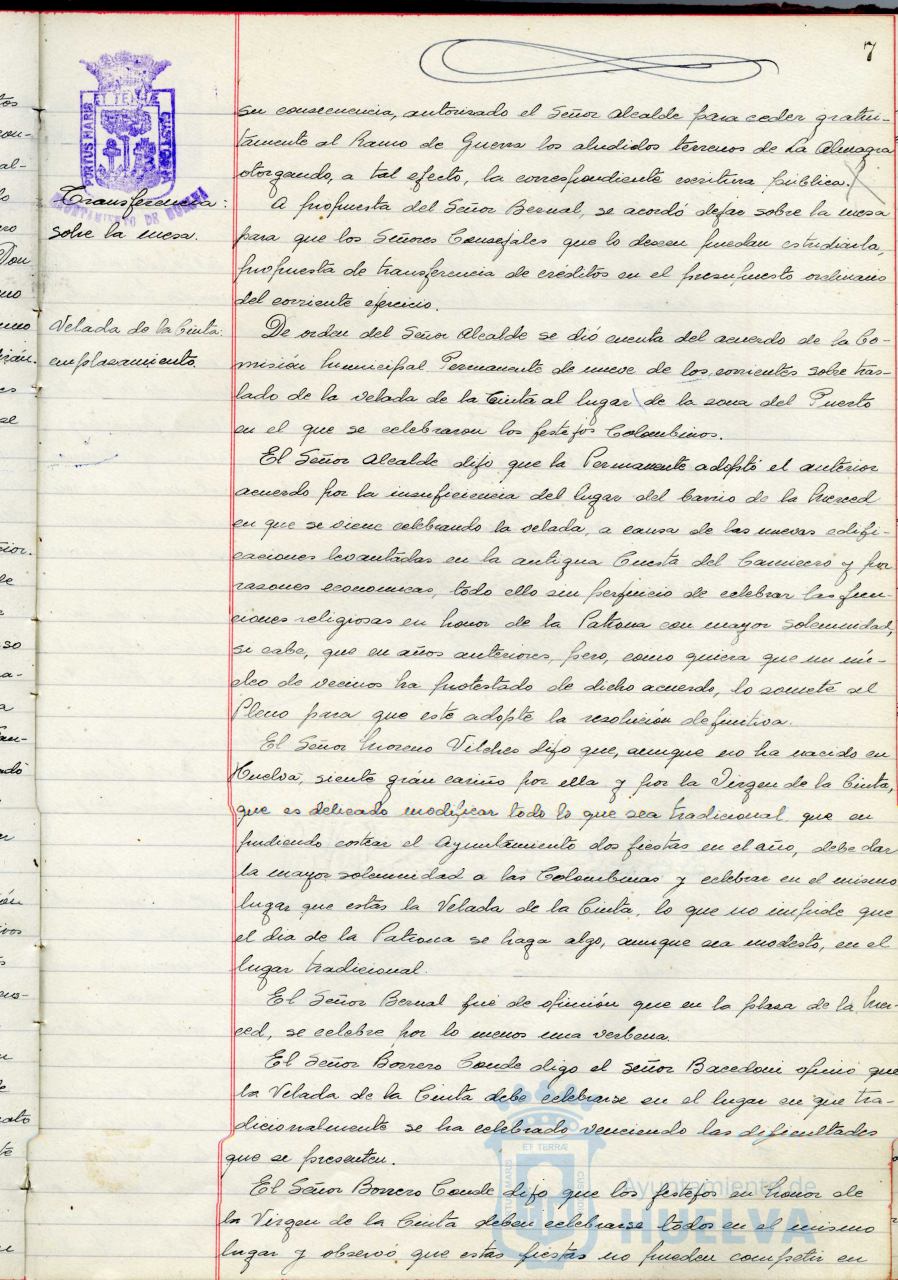 7
PORTUS MARIS ET TERRÆ CUSTODIA
AYUNTAMIENTO DE HUELVA
su consecuencia, autorizado el Señor Alcalde para ceder gratui-
tamente al Ramo de Guerra los aludidos terrenos de La Almagra
otorgando, a tal efecto, la correspondiente escritura pública.
Transferencia:
sobre la mesa.
A propuesta del Señor Bernal, se acordó dejar sobre la mesa
para que los Señores Concejales que lo deseen puedan estudiarla,
propuesta de transferencia de créditos en el presupuesto ordinario
del corriente ejercicio.
Velada de la Cinta:
emplazamiento.
De orden del Señor Alcalde se dió cuenta del acuerdo de la Co-
misión Municipal Permanente de nueve de los corrientes sobre tras-
lado de la velada de la Cinta al lugar de la zona del Puerto
en el que se celebraron los festejos Colombinos.
El Señor Alcalde dijo que la Permanente adoptó el anterior
acuerdo por la insuficiencia del lugar del barrio de la Merced
en que se viene celebrando la velada, a causa de las nuevas edifi-
caciones levantadas en la antigua Cuesta del Carnicero y por
razones economicas, todo ello sin perjuicio de celebrar las fun-
ciones religiosas en honor de la Patrona con mayor solemnidad,
si cabe, que en años anteriores, pero, como quiera que un nú-
cleo de vecinos ha protestado de dicho acuerdo, lo somete al
Pleno para que este adopte la resolución definitiva.
El Señor Moreno Vilches dijo que, aunque no ha nacido en
Huelva, siente grán cariño por ella y por la Virgen de la Cinta,
que es delicado modificar todo lo que sea tradicional, que no
pudiendo costear el Ayuntamiento dos fiestas en el año, debe dar
la mayor solemnidad a las Colombinas y celebrar en el mismo
lugar que estas la Velada de la Cinta, lo que no impide que
el dia de la Patrona se haga algo, aunque sea modesto, en el
lugar tradicional.
El Señor Bernal fué de opinión que en la plaza de la Mer-
ced, se celebre por lo menos una verbena.
El Señor Borrero Conde digo el señor Bacedoni opinó que
la Velada de la Cinta debe celebrarse en el lugar en que tra-
dicionalmente se ha celebrado venciendo las dificultades
que se presenten.
El Señor Borrero Conde dijo que los festejos en honor de
la Virgen de la Cinta deben celebrarse todos en el mismo
lugar y observó que estas fiestas no pueden competir en
Ayuntamiento de
HUELVA